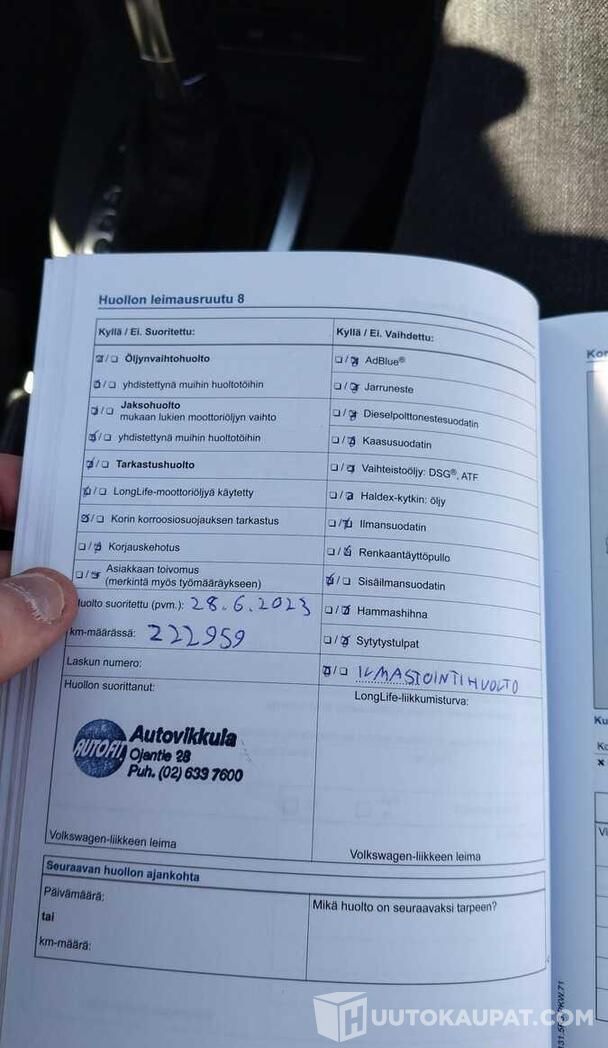 Huollon leimausruutu 8
Kyllä / Ei. Suoritettu:
☑/☐ Öljynvaihtohuolto
☑/☐ yhdistettynä muihin huoltotöihin
☑/☐ Jaksohuolto
mukaan lukien moottoriöljyn vaihto
☑/☐ yhdistettynä muihin huoltotöihin
☑/☐ Tarkastushuolto
☑/☐ LongLife-moottoriöljyä käytetty
☑/☐ Korin korroosiosuojauksen tarkastus
☐/☑ Korjauskehotus
☐/☑ Asiakkaan toivomus
(merkintä myös työmääräykseen)
Huolto suoritettu (pvm.): 28.6.2023
km-määrässä: 222959
Laskun numero:
Huollon suorittanut:
AUTOFIT
Autovikkula
Ojantie 28
Puh. (02) 633 7600
Volkswagen-liikkeen leima
Kyllä / Ei. Vaihdettu:
☐/☑ AdBlue®
☐/☑ Jarruneste
☐/☑ Dieselpolttonestesuodatin
☐/☑ Kaasusuodatin
☐/☑ Vaihteistoöljy: DSG®, ATF
☐/☑ Haldex-kytkin: öljy
☐/☑ Ilmansuodatin
☐/☑ Renkaantäyttöpullo
☑/☐ Sisäilmansuodatin
☐/☑ Hammashihna
☐/☑ Sytytystulpat
☑/☐ ILMASTOINTIHUOLTO
LongLife-liikkumisturva:
Volkswagen-liikkeen leima
Seuraavan huollon ajankohta
Päivämäärä:
tai
km-määrä:
Mikä huolto on seuraavaksi tarpeen?
HUUTOKAUPAT.COM